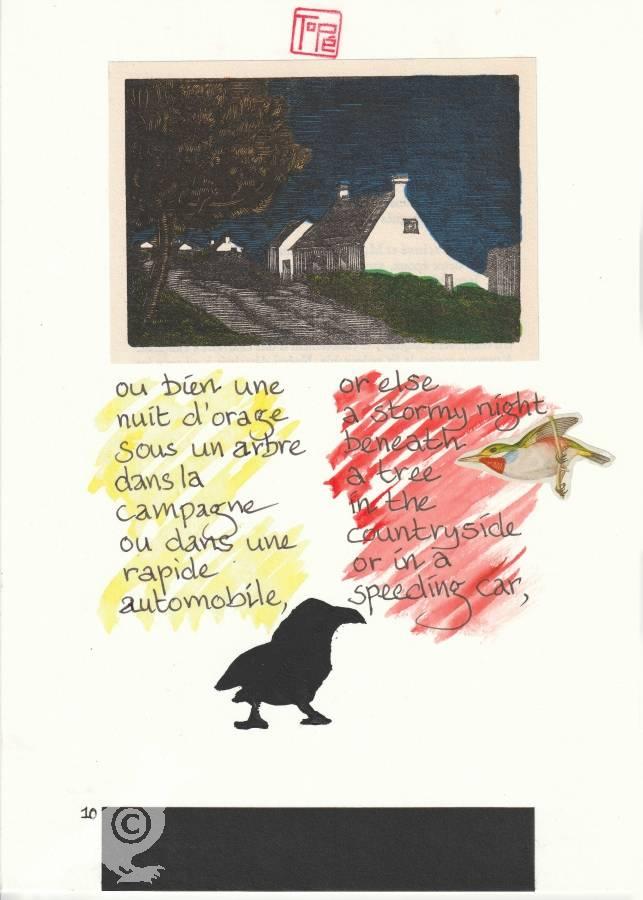 TOPÉ
ou bien une
nuit d'orage
sous un arbre
dans la
campagne
ou dans une
rapide
automobile,
or else
a stormy night
beneath
a tree
in the
countryside
or in a
speeding car,
10
©